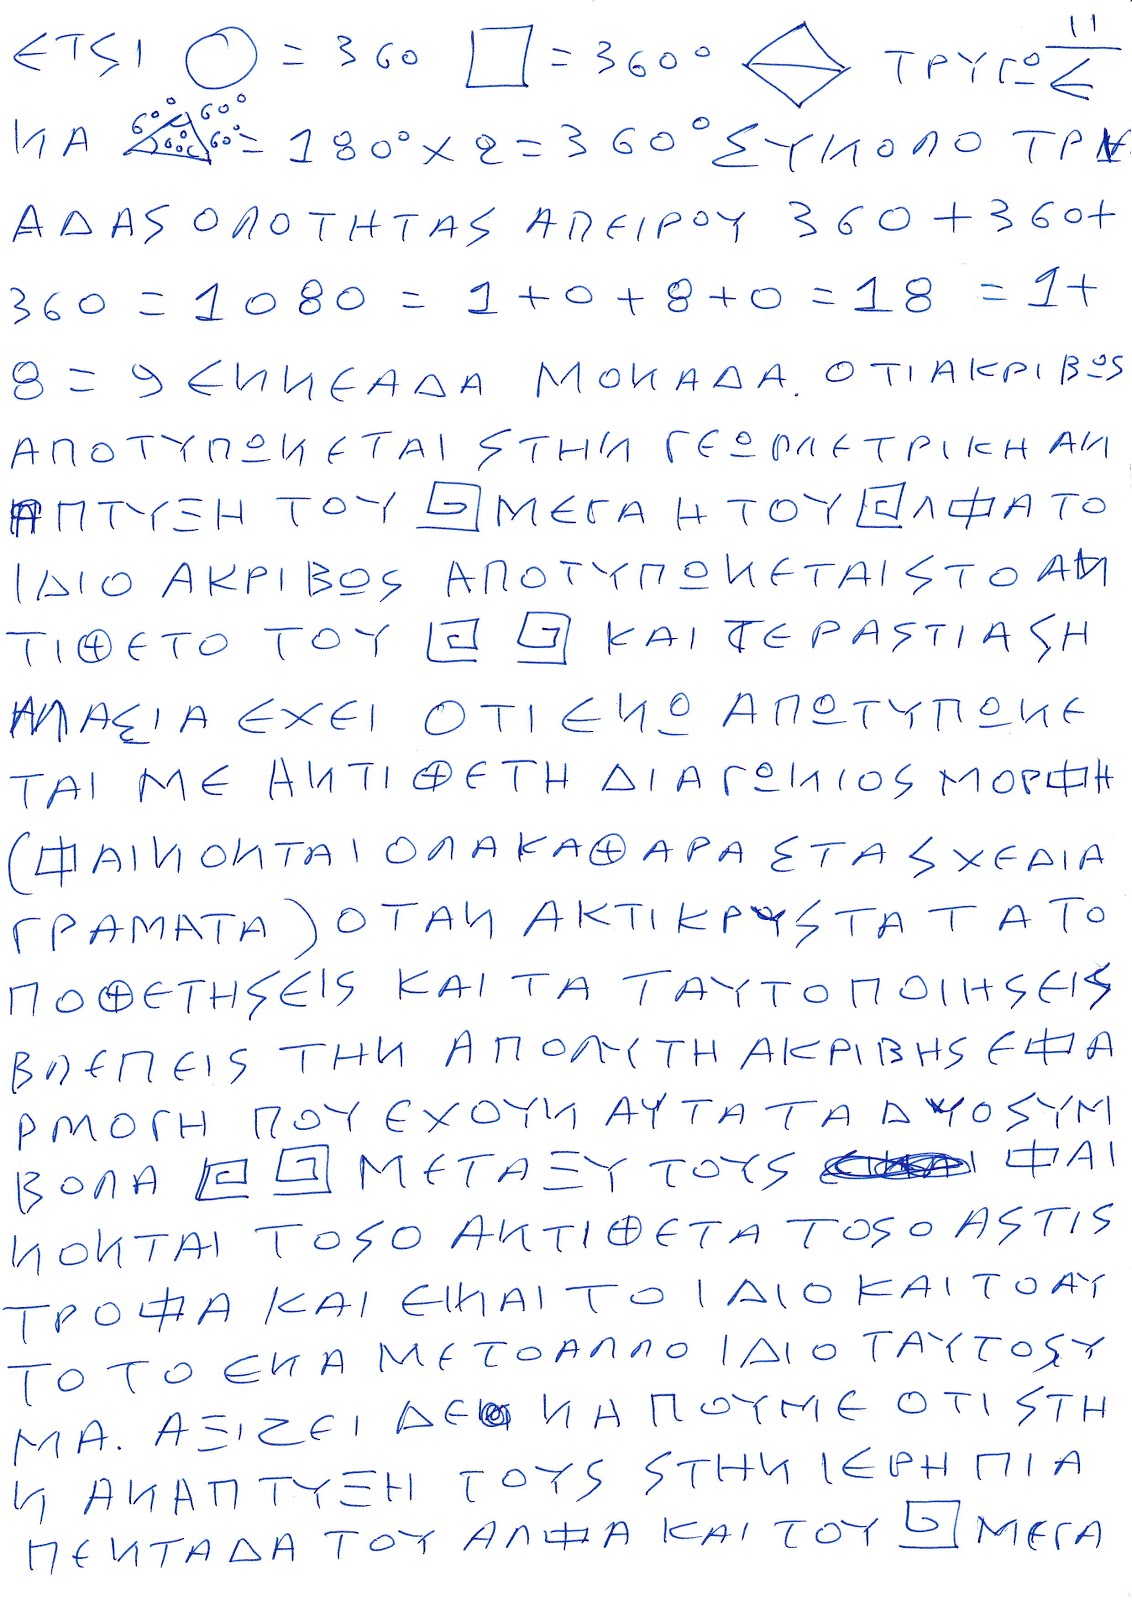 11
ΕΤSΙ = 360 = 360° ΤΡΥΓΩ
ΝΑ 60° 60° 60° 60° = 180° x 2 = 360° ΣΥΝΟΛΟ ΤΡΙ
ΑΔΑS ΟΛΟΤΗΤΑS ΑΠΕΙΡΟΥ 360 + 360 +
360 = 1080 = 1 + 0 + 8 + 0 = 18 = 1 +
8 = 9 ΕΝΝΕΑΔΑ ΜΟΝΑΔΑ. ΟΤΙ ΑΚΡΙΒΩS
ΑΠΟΤΥΠΩΝΕΤΑΙ SΤΗΝ ΓΕΩΜΕΤΡΙΚΗ ΑΝ
ΑΠΤΥΞΗ ΤΟΥ ΜΕΓΑ Η ΤΟΥ ΛΦΑ ΤΟ
ΙΔΙΟ ΑΚΡΙΒΩS ΑΠΟΤΥΠΩΝΕΤΑΙ SΤΟ ΑΝ
ΤΙΘΕΤΟ ΤΟΥ ΚΑΙ ΤΕΡΑSΤΙΑ SΗ
ΜΑΣΙΑ ΕΧΕΙ ΟΤΙ ΕΝΩ ΑΠΩΤΥΠΩΝΕ
ΤΑΙ ΜΕ ΑΝΤΙΘΕΤΗ ΔΙΑΓΩΝΙΟS ΜΟΡΦΗ
(ΦΑΙΝΟΝΤΑΙ ΟΛΑ ΚΑΘΑΡΑ ΣΤΑ SΧΕΔΙΑ
ΓΡΑΜΑΤΑ) ΟΤΑΝ ΑΚΤΙΚΡΥSΤΑ ΤΑ ΤΟ
ΠΟΘΕΤΗSΕΙS ΚΑΙ ΤΑ ΤΑΥΤΟΠΟΙΗSΕΙS
ΒΛΕΠΕΙS ΤΗΝ ΑΠΟΛΥΤΗ ΑΚΡΙΒΗS ΕΦΑ
ΡΜΟΓΗ ΠΟΥ ΕΧΟΥΝ ΑΥΤΑ ΤΑ ΔΥΟ SΥΜ
ΒΟΛΑ ΜΕΤΑΞΥ ΤΟΥS ΦΑΙ
ΝΟΝΤΑΙ ΤΟSΟ ΑΝΤΙΘΕΤΑ ΤΟSΟ ΑSΤΙS
ΤΡΟΦΑ ΚΑΙ ΕΙΝΑΙ ΤΟ ΙΔΙΟ ΚΑΙ ΤΟ ΑΥ
ΤΟ ΤΟ ΕΝΑ ΜΕ ΤΟ ΑΛΛΟ ΙΔΙΟ ΤΑΥΤΟSΥ
ΜΑ. ΑΞΙΖΕΙ ΔΕ ΝΑ ΠΟΥΜΕ ΟΤΙ SΤΗ
Ν ΑΝΑΠΤΥΞΗ ΤΟΥS SΤΗΝ ΙΕΡΗ ΠΙΑ
ΠΕΝΤΑΔΑ ΤΟΥ ΑΛΦΑ ΚΑΙ ΤΟΥ ΜΕΓΑ